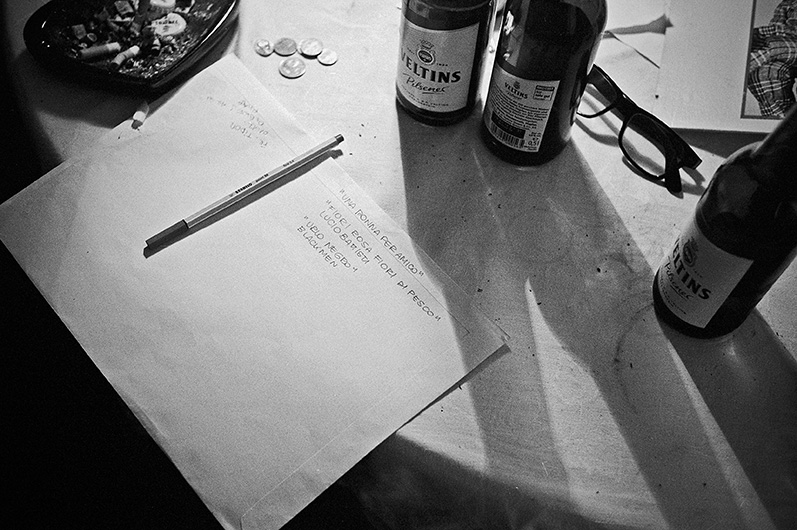 VELTINS
Pilsener
VELTINS
VELTINS
Pilsener
"UNA DONNA PER AMICO"
"FIORI ROSA FIORI DI PESCO"
LUCIO BATTISTI
"URLO NEGRO"
BLACKMEN